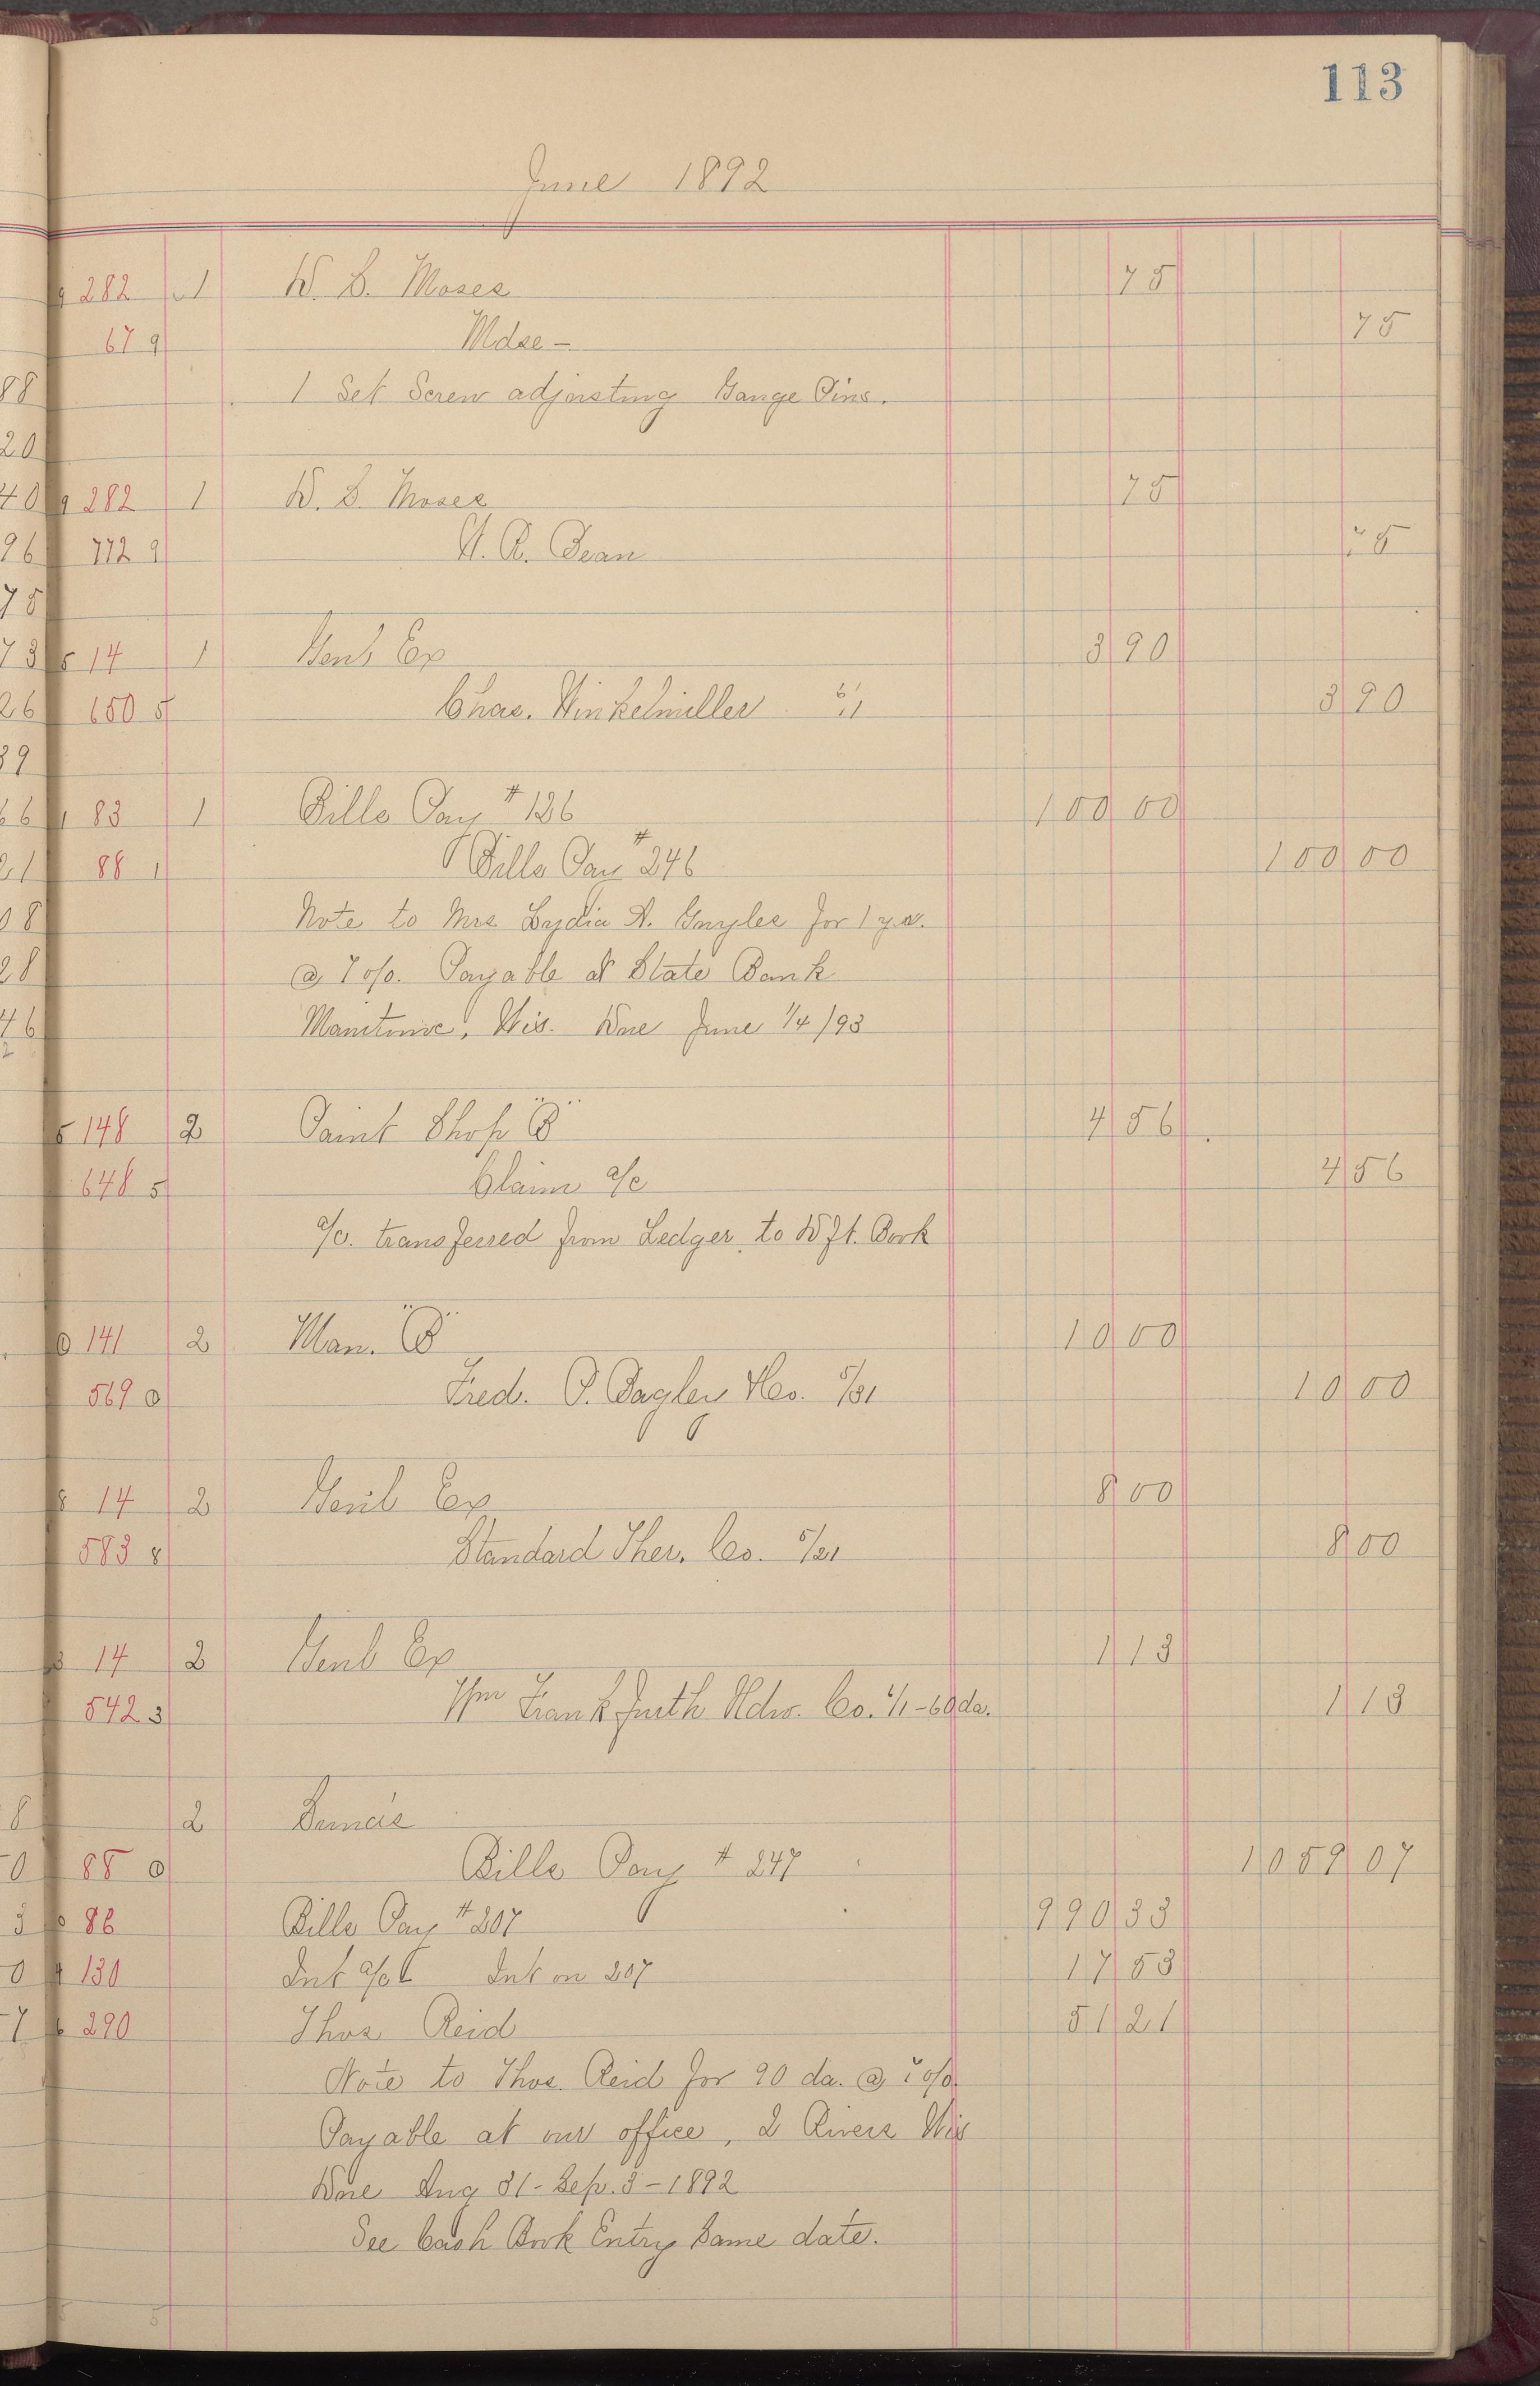 113
June 1892
9 282 1 W. S. Moses 75
67 9 Mdse - 75
88 1 Set Screw adjusting Gauge Pins.
20
40 9 282 1 W. S. Moses 75
96 772 9 H. R. Dean 75
75
73 5 14 1 Genl Ex 3 90
26 650 5 Chas. Winkelmiller 6/1 3 90
39
66 1 83 1 Bills Pay # 136 100 00
21 88 1 Bills Pay # 246 100 00
08 Note to Mrs Lydia A. Guyles for 1 yr.
28 @ 7 o/o. Payable at State Bank
46 Manitowoc, Wis. Due June 1/4/93
5 148 2 Paint Shop "B" 4 56
648 5 Claim a/c 4 56
a/c. transferred from Ledger to W Ft. Book
0 141 2 Man. "B" 10 00
569 0 Fred. P. Bagley &Co. 5/31 10 00
8 14 2 Genl Ex 8 00
583 8 Standard Ther. Co. 5/21 8 00
3 14 2 Genl Ex 1 13
542 3 Wm Frankfurth Hdw. Co. 6/1 - 60 da. 1 13
8 2 Sundrie
0 88 0 Bills Pay # 247 1059 07
3 0 86 Bills Pay # 207 990 33
0 4 130 Int a/c Int on 207 17 53
7 6 290 Thos Reid 51 21
Note to Thos. Reid for 90 da. @ 7 o/o.
Payable at our office, 2 Rivers Wis
Due Aug 31 - Sep. 3 - 1892
See Cash Book Entry Same date.